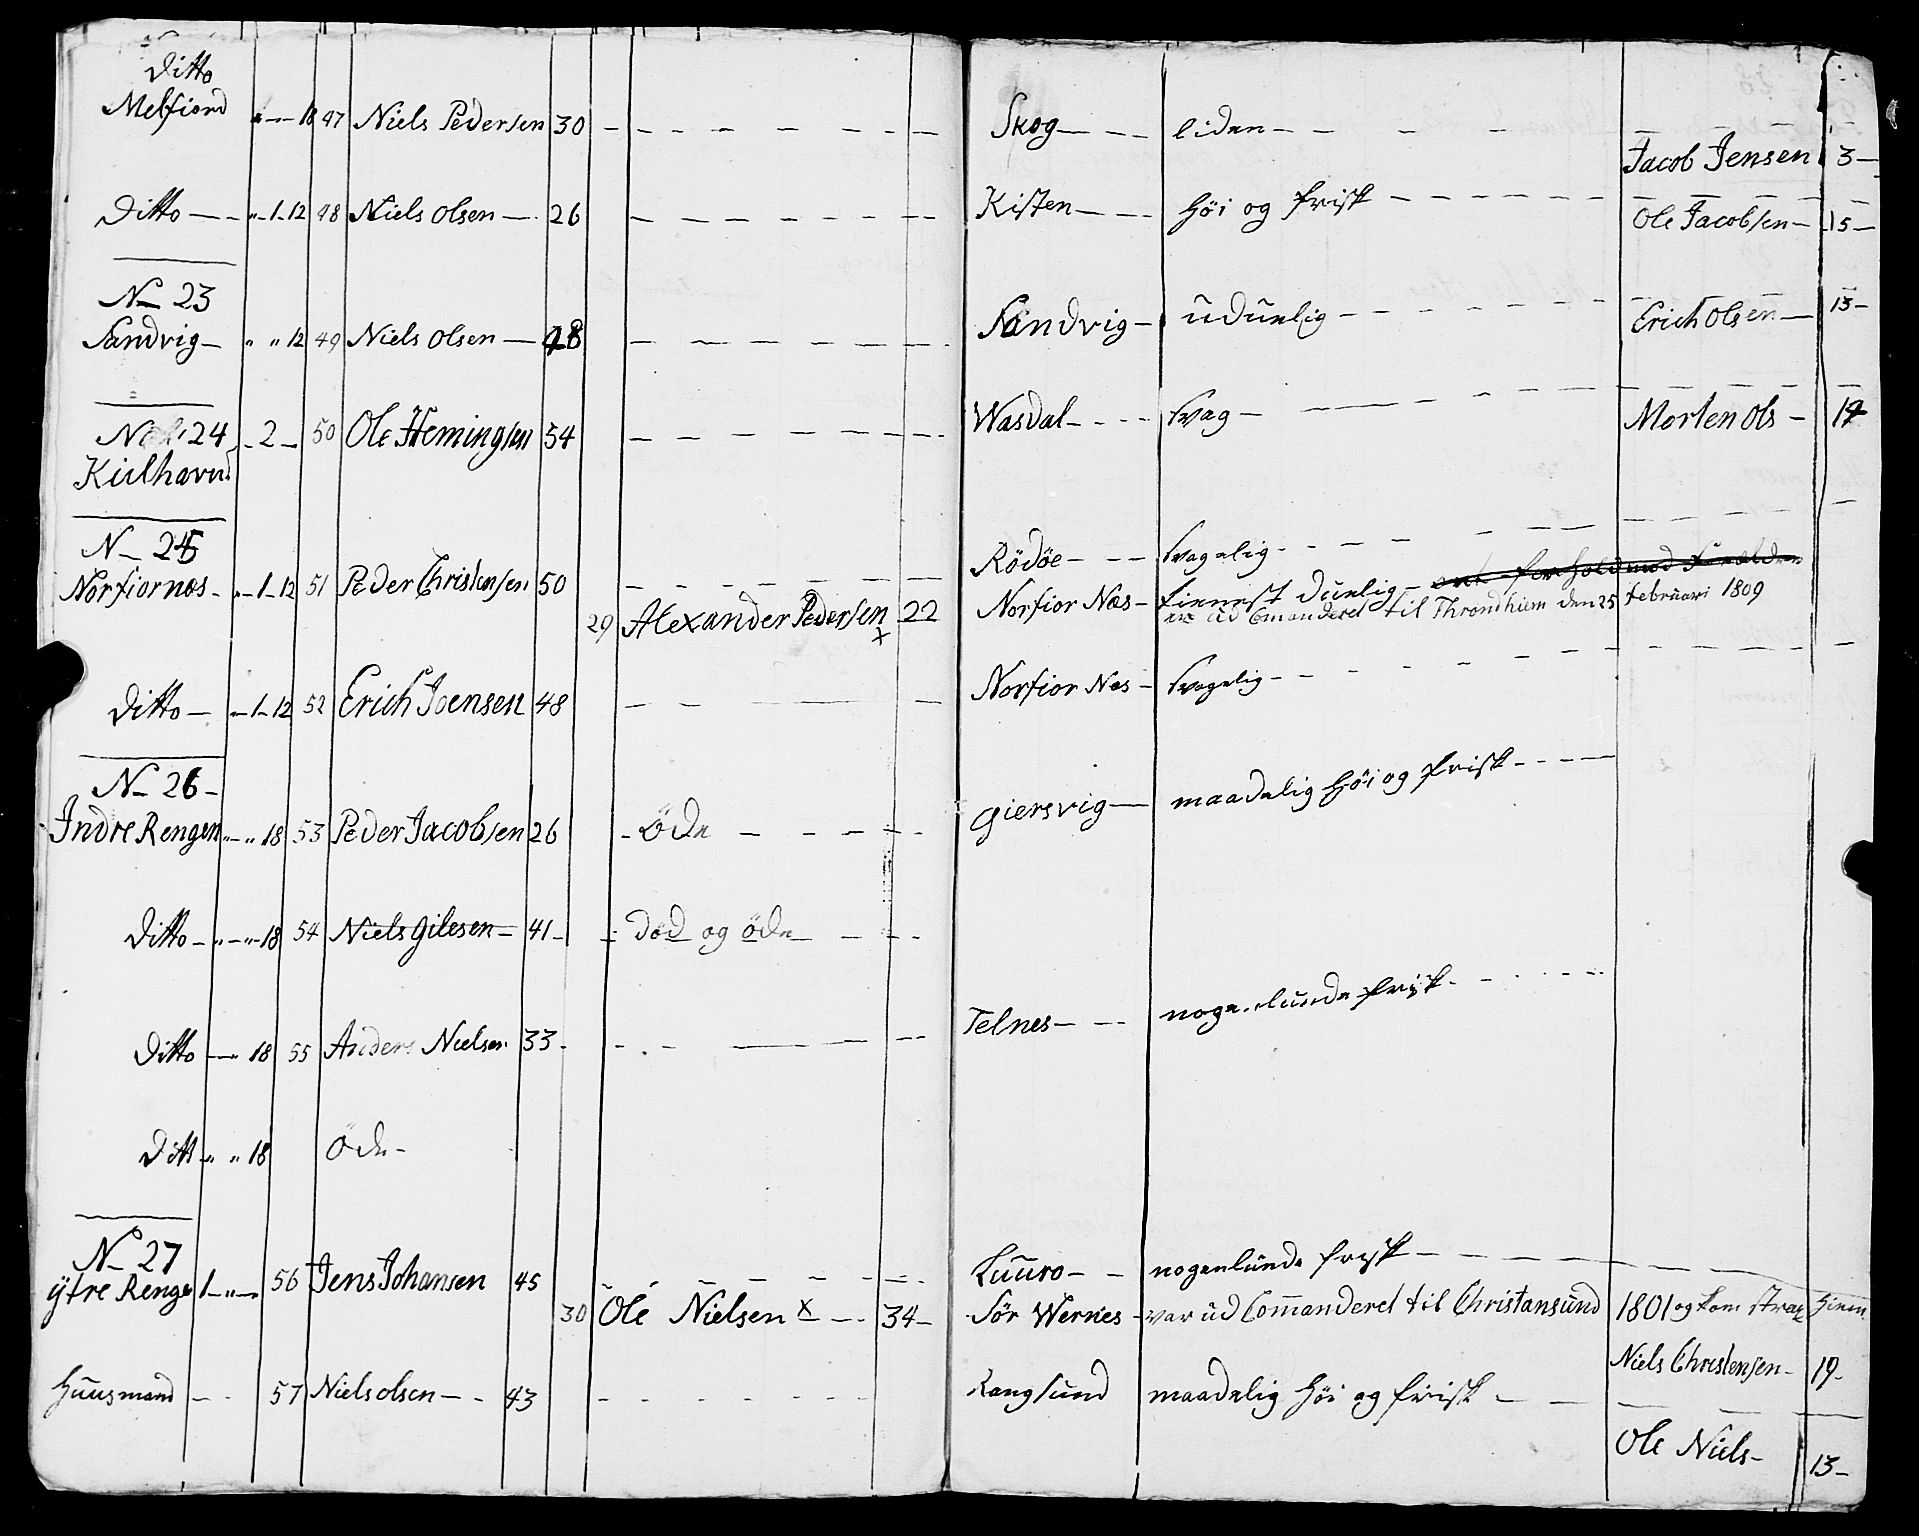 Ditto
Melfiord " — 18 47 Niels Pedersen 30 — — — — Skog — — liden — — — —
Jacob Jensen 3 —
Ditto — " — 1 - 12 48 Niels Olsen — 26 — — — — Kisten — — höi og frisk — — — — Ole Jacobsen — 15 —
N— 23
Sandvig — " " 12 49 Niels Olsen — 48 — — — — Sandvig — uduelig — — — — Erich Olsen — 13 —
24 - 2 — 50 Ole Hemingsen 54 — — — — Wasdal — — — svag — — — Morten Ols — 14
Kielhavn
N— 25
Norfiornæs - " — 1 - 12 51 Peder Christensen 50 — — — — Rödöe — — — svagelig — — — —
29 Alexander Pedersen x 22 Norfior Næs — tienest duelig — forhold
er ud Comanderet til Throndhiem den 25 februari 1809
Ditto — — 1 - 12 52 Erich Joensen 48 — — — — Norfior Næs — svagelig — — — —
N— 26 —
Indre Rengen " — " 18 53 Peder Jacobsen 26 — öde — — — — Giersvig — maadelig höi og frisk — — —
Ditto — " — " — 18 54 Niels Gilesen — 41 — — död og öde — — —
Ditto — " 18 55 Anders Nielsen 33 — — — — Telnes — — — nogenlunde frisk — — — —
Ditt " " 18 öde —
N— 27
ÿtre Renge 1 — " — 56 Jens Johansen 45 — — — — Luuro — — nogenlunde frisk — — — —
30 Ole Nielsen x — — 34 — Sör Wernes — var ud Commanderet til Christansund 1801 og kom strax hiem
Niels Christensen — 19 —
Huusmand — — 57 Niels olsen — — 43 — — — — Rangsund maadelig höi og frisk — — —
Ole Niels — 13 —